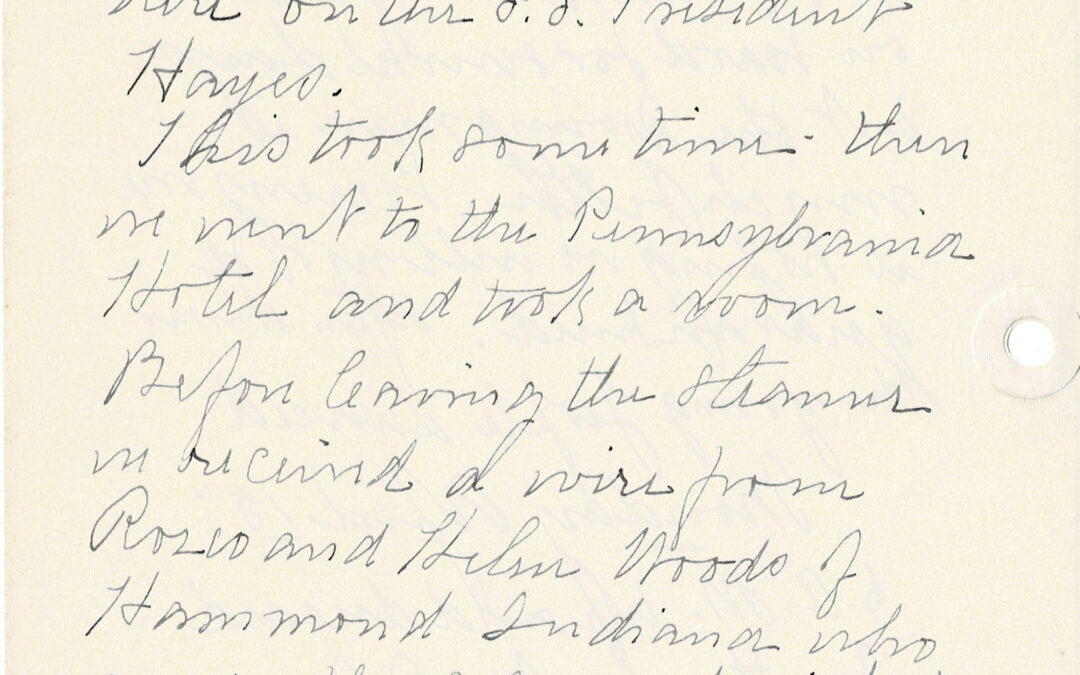 here on the S.S. President
Hayes.
This took some time - then
we went to the Pennsylvania
Hotel and took a room.
Before leaving the steamer
we received a wire from
Rosco and Helen Woods of
Hammond Indiana who